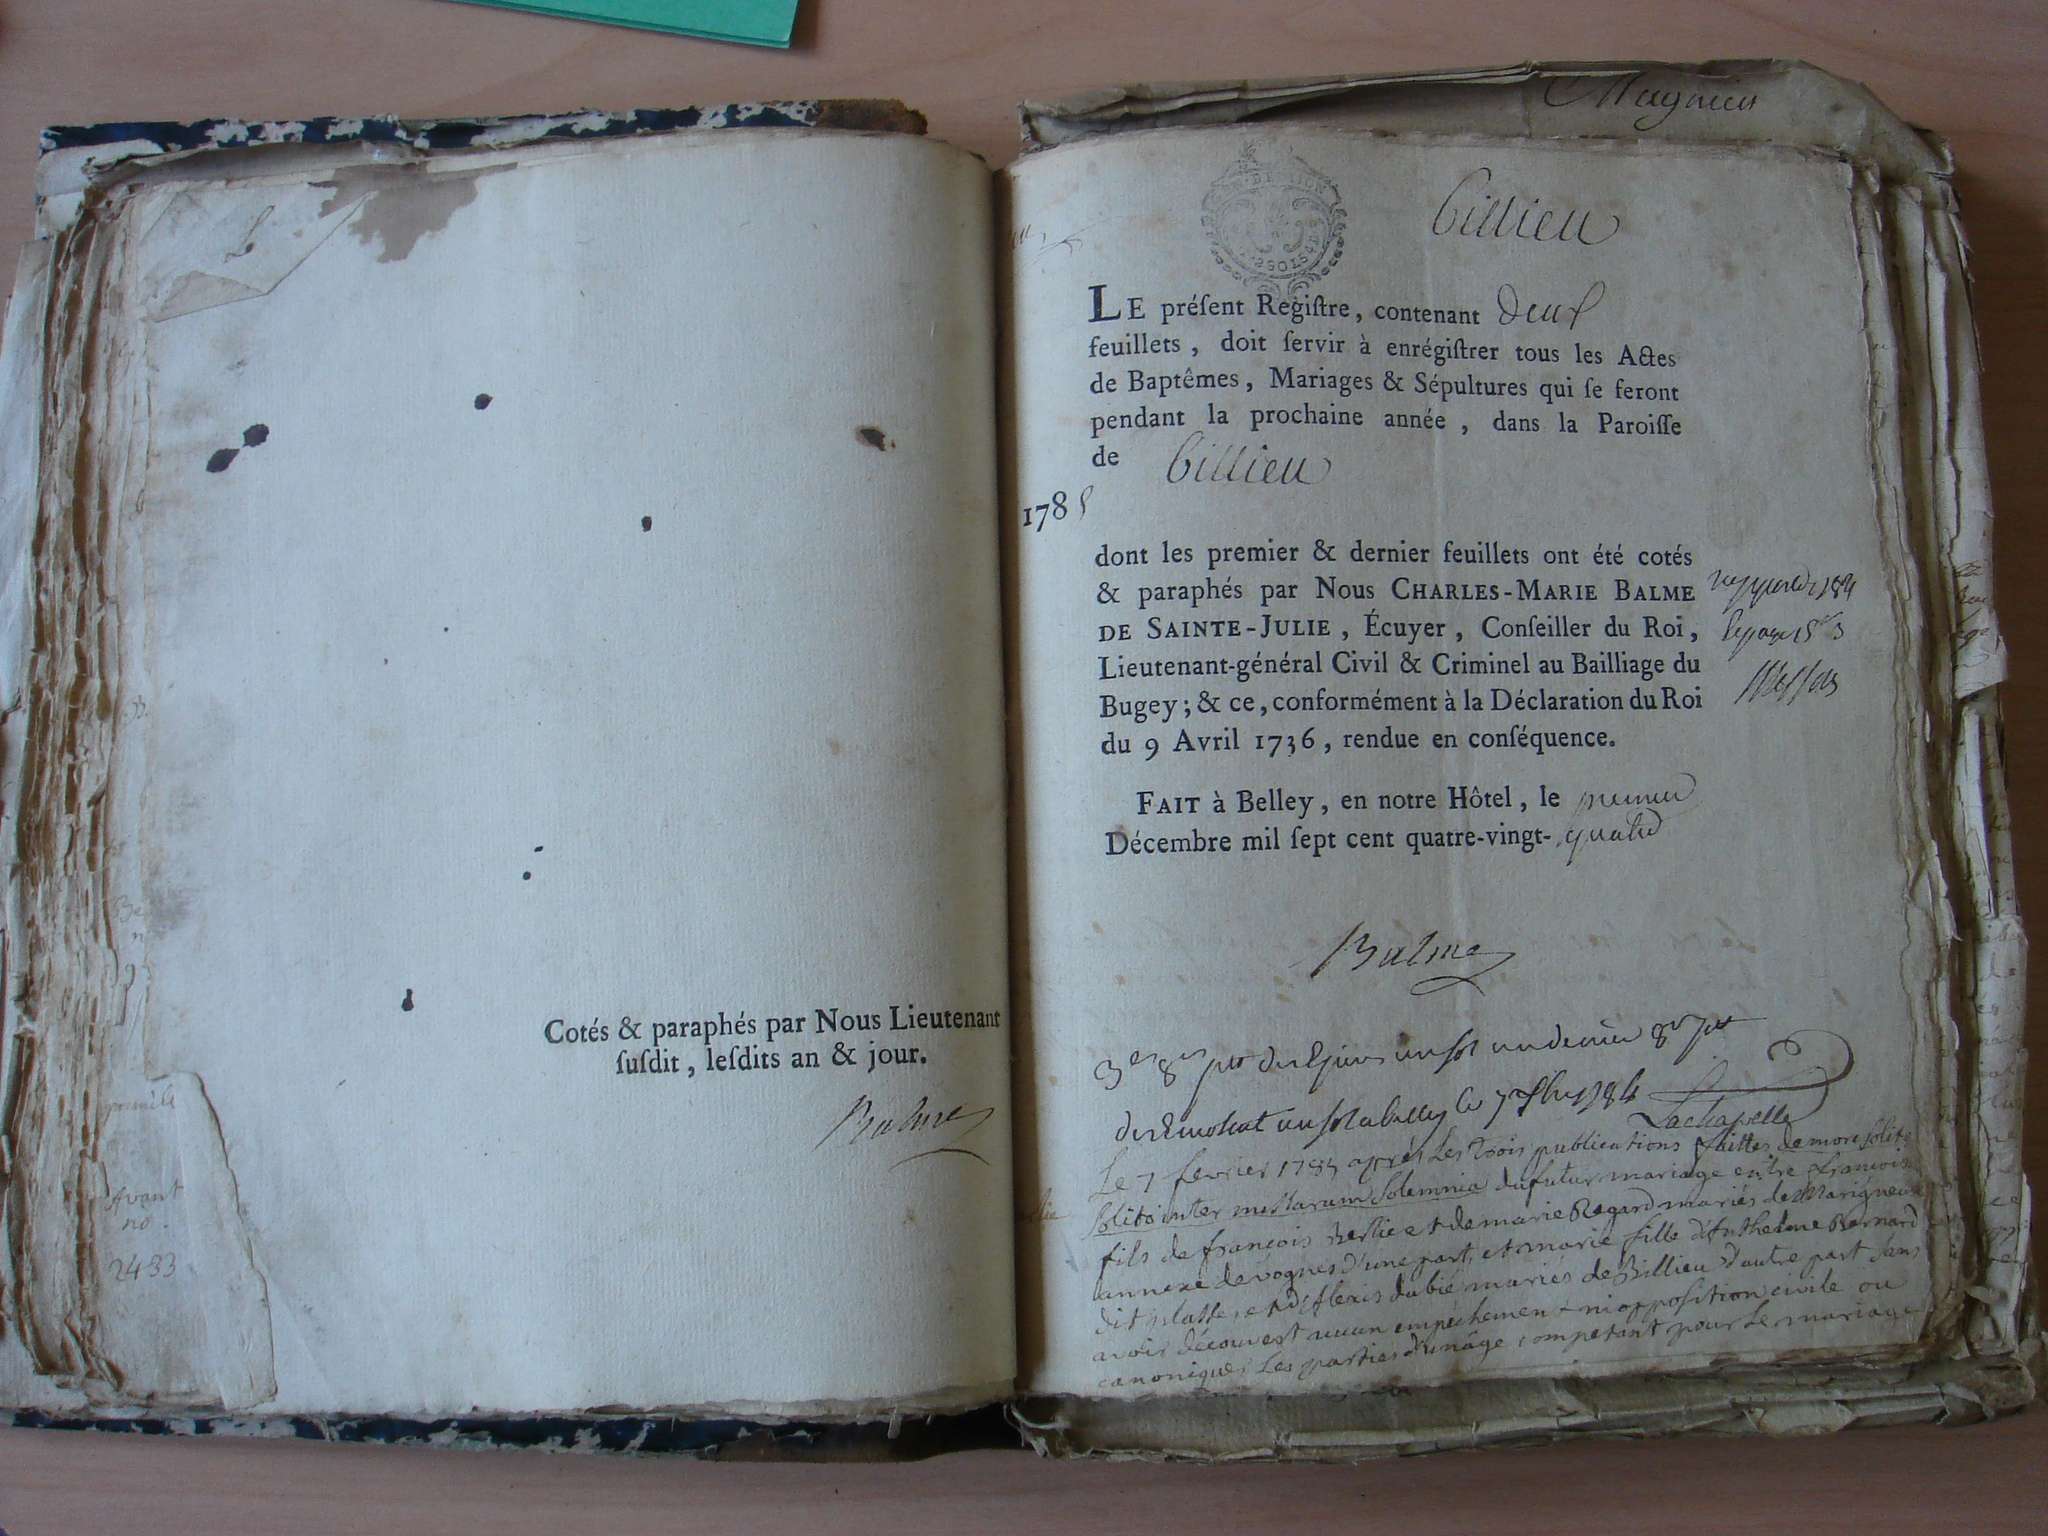 Cotés & paraphés par Nous Lieutenant
ſuſdit, leſdits an & jour.
Balme
Avant
no.
2483
Billieu
LE préſent Regiſtre, contenant deux
feuillets, doit ſervir à enrégiſtrer tous les Actes
de Baptêmes, Mariages & Sépultures qui ſe feront
pendant la prochaine année, dans la Paroiſſe
de Billieu
1785
dont les premier & dernier feuillets ont été cotés
& paraphés par Nous CHARLES-MARIE BALME
DE SAINTE-JULIE, Écuyer, Conſeiller du Roi,
Lieutenant-général Civil & Criminel au Bailliage du
Bugey; & ce, conformément à la Déclaration du Roi
du 9 Avril 1736, rendue en conſéquence.
FAIT à Belley, en notre Hôtel, le premier
Décembre mil ſept cent quatre-vingt-quatre
Balme
Lachapelle
Le 7 fevrier 1785 après Les Trois publications faittes de more solito
inter missarum solemnia du futur mariage entre françois
fils de françois Berlie et de marie Regard mariés de Marigneux
annexe de vognes d'une part, et marie fille d'Anthelme Bernard
dit et d'Alexis dubié mariés de Billieu d'autre part sans
avoir découvert aucun empêchement ni opposition civile ou
canonique, Les parties d'un âge competant pour Le mariage